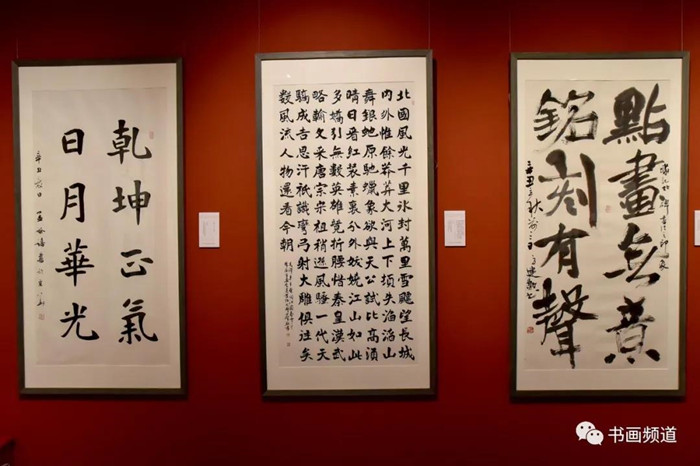 乾坤正氣
日月華光
北國風光千里冰封萬里雪飄望長城
内外惟餘莽莽大河上下頓失滔滔山
舞銀蛇原馳蠟象欲與天公試比高須
晴日看紅裝素裹分外妖嬈江山如此
多嬌引無數英雄競折腰惜秦皇漢武
略輸文采唐宗宋祖稍遜風騷一代天
驕成吉思汗祇識彎弓射大雕俱往矣
數風流人物還看今朝
點畫無意
銘刻有聲
书画频道